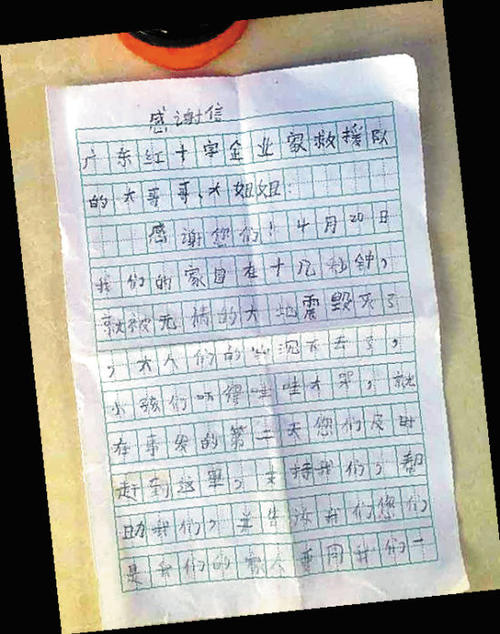 感谢信
广东红十字企业家救援队
的大哥哥、大姐姐：
感谢您们！4月20日
我们的家园在十几秒钟，
就被无情的大地震毁灭了
，大人们的心沉下去了，
小孩们吓得哇哇大哭，就
在来发的第二天您们及时
赶到这里，支持我们，帮
助我们，并告诉我们您们
是我们的家人重用我们一